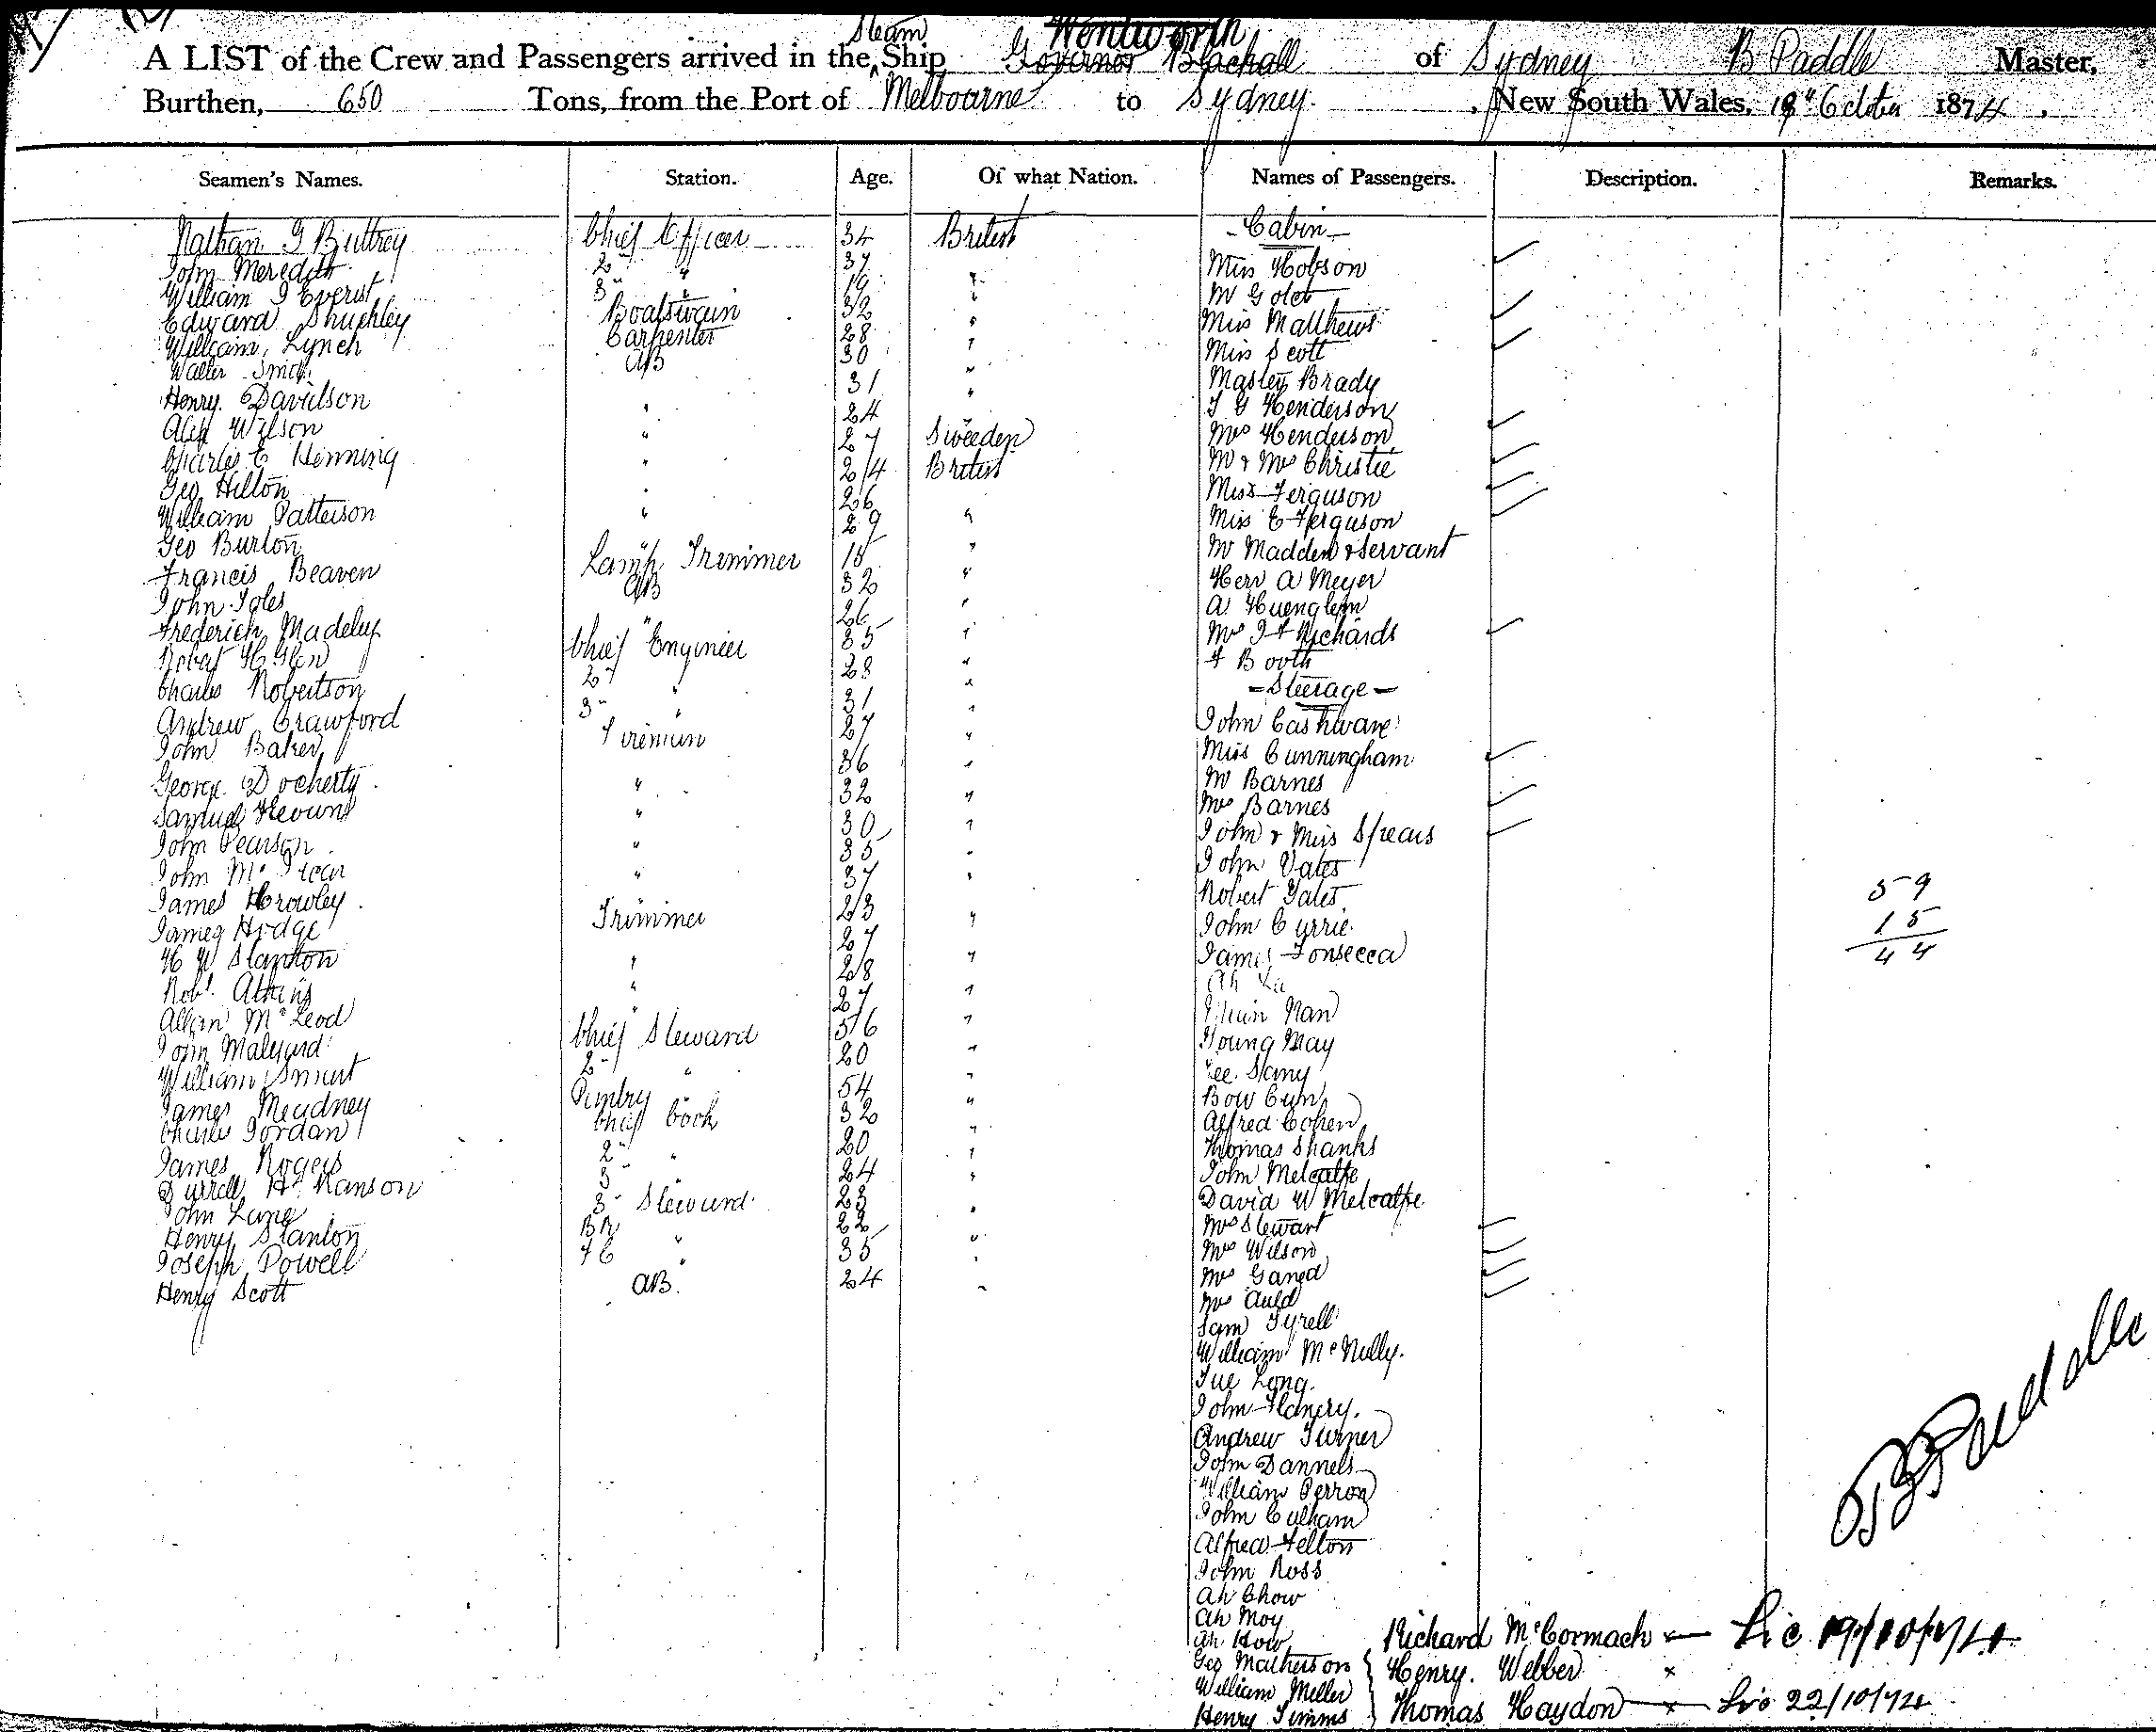 Steam Wentworth
A LIST of the Crew and Passengers arrived in the Ship Governor Blackall of Sydney B Paddle Master,
Burthen, 650 Tons, from the Port of Melbourne to Sydney, New South Wales, 19th October 1874.
Seamen's Names. Station. Age. Of what Nation. Names of Passengers. Description. Remarks.
Nathan G Buttrey Chief Officer 34 British - Cabin -
John Meredith 2 " 37 Miss Hobson
William J Everist 3 " 19 " Mr Golet
Edward Shuckley Boatswain 32 " Miss Matthews
William Lynch Carpenter 28 " Miss Scott
Walter AB 30 " Master Brady
Henry Davidson 31 " J G Henderson
Alex Wilson " 24 " Mrs Henderson
Charles E Henning " 27 Sweeden Mr & Mrs Christie
Geo Hilton " 24 British Miss Ferguson
William Patterson " 26 Miss E Ferguson
Geo Burton " 29 " Mr Madden & Servant
Francis Beaven Lamp Trimmer 15 " Herr A Meyer
John AB 32 " A
Frederick Madeley " 26 " Mrs Richards
Robert H Glen Chief Engineer 35 " F Booth
Charles Robertson 2 " 28 " - Steerage -
Andrew Crawford 3 " 31 " John
John Baker Firemun 27 " Miss Cunningham
George Docherty " 36 " Mr Barnes
Samuel " 32 " Mrs Barnes
John Pearson " 30 " John & Miss Spears
John Mc " 35 " John Vates
James Crowley " 37 " Robert Yates 59
James Hodge Trimmer 23 " John Currie 15
H W Stanton " 27 " James Fonsecca 44
Robt. Atkins " 28 " Ah
Allan McLeod " 27 " Nan
John Malyard Chief Steward 56 " Young May
William Smart 2 " 20 "
James Meadney Pantry " 54 " Bow
Charles Jordan Chief Cook 32 " Alfred Cohen
James Rogers 2 " 20 " Thomas Shanks
H Ranson 3 " 24 " John Metcalfe
John Lane 3 Steward 23 " David W Metcalfe
Henry Stanton BR " 22 " Mrs Stewart
Joseph Powell FC " 35 " Mrs Wilson
Henry Scott AB. 24 " Mrs
Mrs Auld
Sam Tyrell
William McNully.
Long.
John Flanery.
Andrew Turner
John Dannels
William Perron
John Culham
Alfred Felton
John Ross
Ah Chow
Ah Moy
Ah How Richard McCormack x — Lic 19/10/74
Geo Matherson } Henry. Webber x
William Miller
Henry Timms } Thomas Haydon — x — Lic 22/10/74
B Paddle